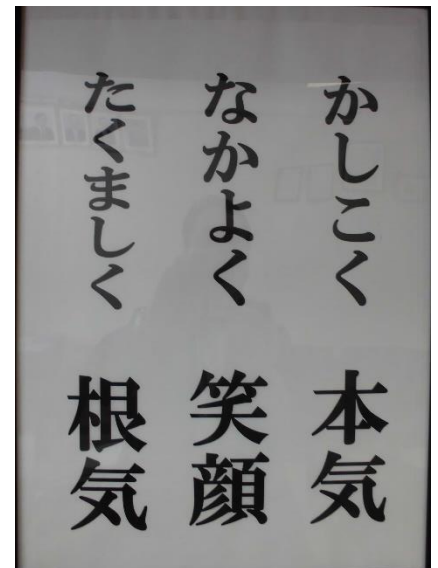 かしこく 本気
なかよく 笑顔
たくましく 根気